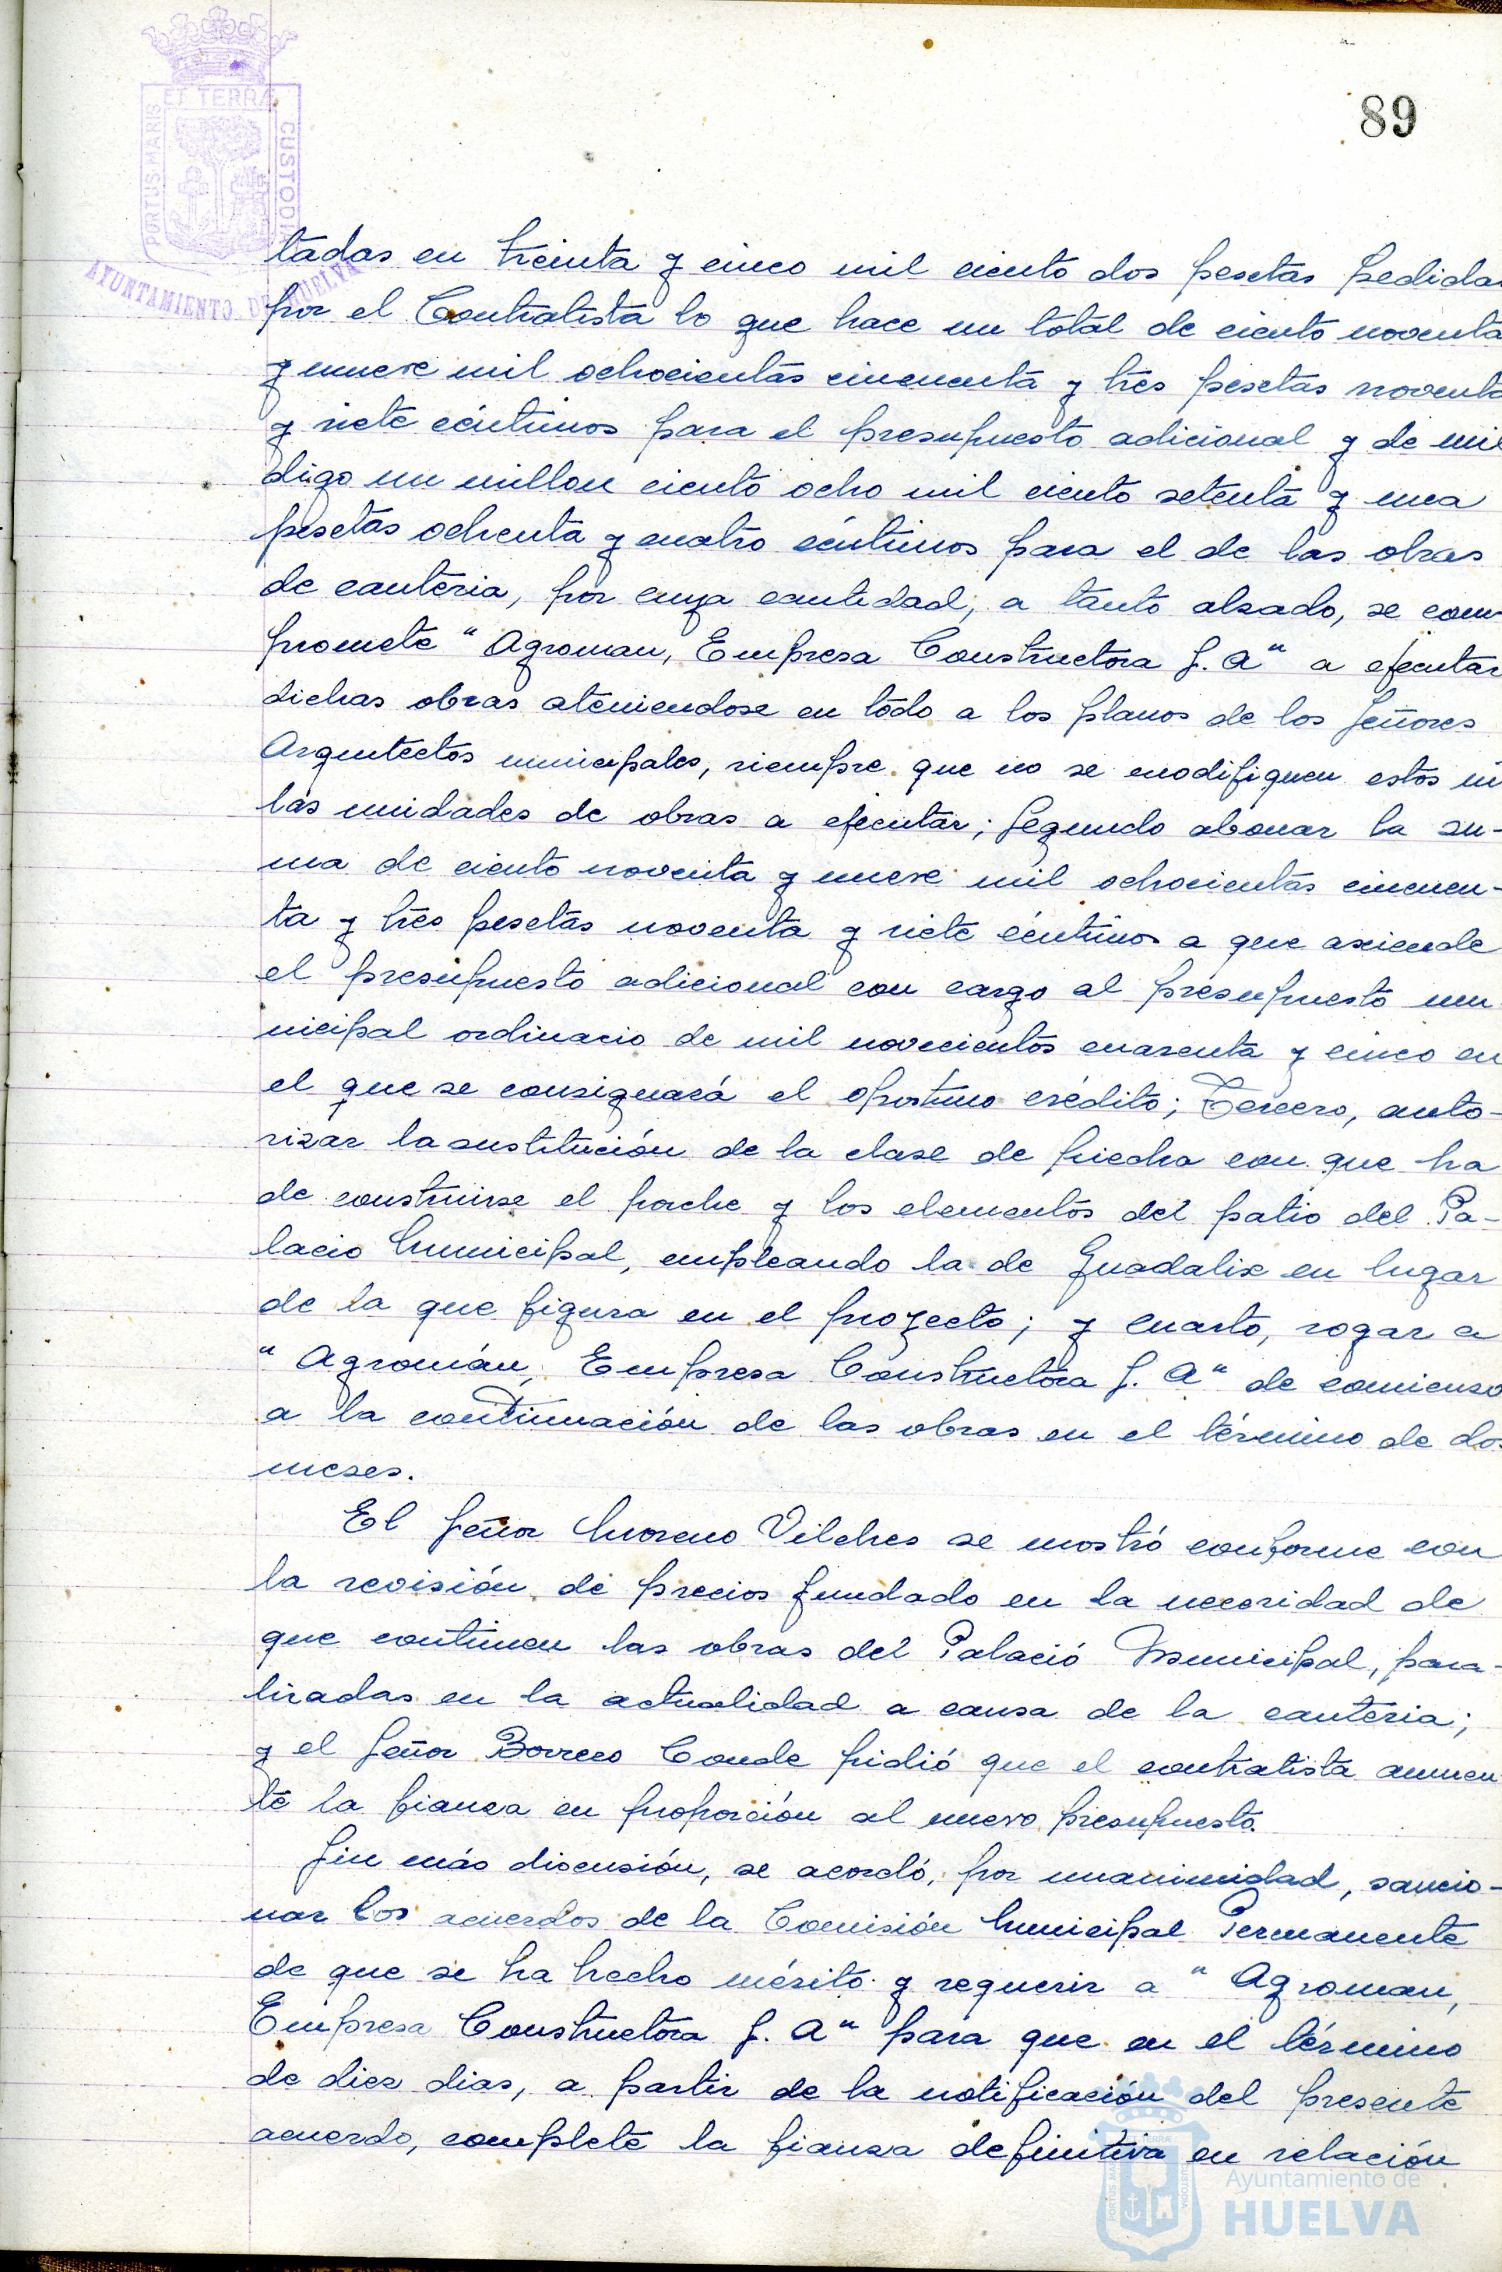 89
PORTUS MARIS ET TERRÆ CUSTODIA
AYUNTAMIENTO DE HUELVA
tadas en treinta y cinco mil ciento dos pesetas pedidas
por el Contratista lo que hace un total de ciento noventa
y nueve mil ochocientas cincuenta y tres pesetas noventa
y siete céntimos para el presupuesto adicional y de mil
digo un millon ciento ocho mil ciento setenta y una
pesetas ochenta y cuatro céntimos para el de las obras
de canteria, por cuya cantidad, a tanto alzado, se com-
promete "Agroman, Empresa Constructora S. A" a ejecutar
dichas obras ateniendose en todo a los planos de los Señores
Arquitectos municipales, siempre que no se modifiquen estos ni
las unidades de obras a ejecutar; Segundo abonar la su-
ma de ciento noventa y nueve mil ochocientas cincuen-
ta y tres pesetas noventa y siete céntimos a que asciende
el presupuesto adicional con cargo al presupuesto mu-
nicipal ordinario de mil novecientos cuarenta y cinco en
el que se consignará el oportuno crédito; Tercero, auto-
rizar la sustitución de la clase de piedra con que ha
de construirse el porche y los elementos del patio del Pa-
lacio Municipal, empleando la de Guadalix en lugar
de la que figura en el proyecto; y cuarto, rogar a
"Agromán, Empresa Constructora S. A" de comienzo
a la continuación de las obras en el término de dos
meses.
El Señor Moreno Vilches se mostró conforme con
la revisión de precios fundado en la necesidad de
que continuen las obras del Palació Municipal, para-
lizadas en la actualidad a causa de la canteria;
y el Señor Borrero Conde pidió que el contratista aumen-
te la fianza en proporción al nuevo presupuesto.
Sin más discusión, se acordó, por unanimidad, sancio-
nar los acuerdos de la Comisión Municipal Permanente
de que se ha hecho mérito y requerir a "Agroman,
Empresa Constructora S. A" para que en el término
de diez dias, a partir de la notificación del presente
acuerdo, complete la fianza definitiva en relación
Ayuntamiento de
HUELVA